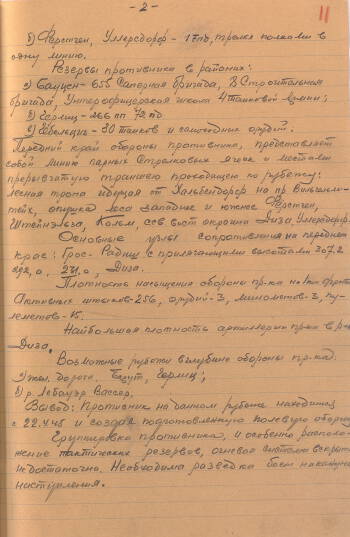 - 2 -
11
б) Ферстген, Уллерсдорф - 1 пд, тремя полками в
одну линию.
Резервы противника в районах:
а) Бауцен - 655 Саперная бригада, В Строительная
бригада, Унтерофицерская школа 4 танковой армии;
б) Герлиц - 266 пп 72 пд
в) 50 танков и самоходных орудий.
Передний край обороны противника, представляет
собой линию парных стрелковых ячеек и местами
прерывчатую траншею проходящею по рубежу:
лесная тропа идущая от
опушка леса западнее и южнее Ферстген,
вост окраина Диза, Уллерсдорф.
Основные узлы сопротивления на переднем
крае: Грос-Радиш с прилегающими высотами 307.2
Диза.
Плотность насыщения обороны пр-ка на 1 км фронта
Активных штыков-256, орудий-3, минометов-3, пу-
леметов-15.
Наибольшая плотность артиллерии пр-ка в р-не
Диза.
Возможные рубежи в глубине обороны пр-ка:
а) жел. дорога Герлиц;
б) р.
Вывод: Противник на данном рубеже находится
с 22.4.45 и создал подготовленную полевую оборону
Группировка противника, и особенно располо-
жение тактических резервов, огневая система вскрыты
недостаточно. Необходима разведка боем накануне
наступления.